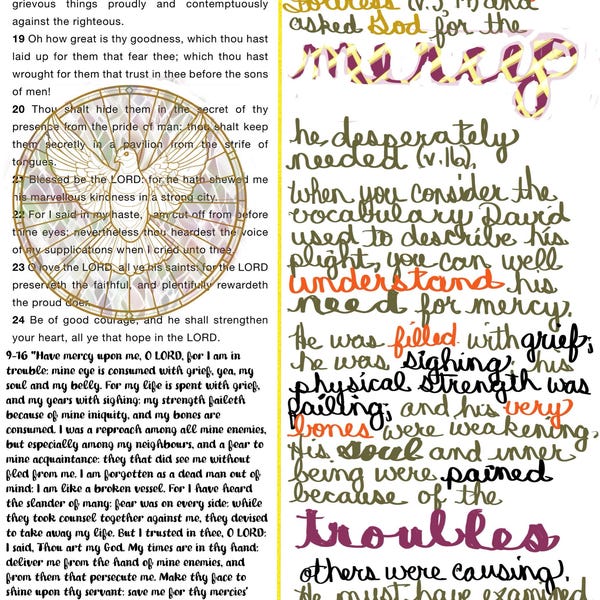 grievous things proudly and contemptuously
against the righteous.
19 Oh how great is thy goodness, which thou hast
laid up for them that fear thee; which thou hast
wrought for them that trust in thee before the sons
of men!
20 Thou shalt hide them in the secret of thy
presence from the pride of man: thou shalt keep
them secretly in a pavilion from the strife of
tongues.
21 Blessed be the LORD: for he hath shewed me
his marvellous kindness in a strong city.
22 For I said in my haste, I am cut off from before
thine eyes: nevertheless thou heardest the voice
of my supplications when I cried unto thee.
23 O love the LORD, all ye his saints: for the LORD
preserveth the faithful, and plentifully rewardeth
the proud doer.
24 Be of good courage, and he shall strengthen
your heart, all ye that hope in the LORD.
9-16 "Have mercy upon me, O LORD, for I am in
trouble: mine eye is consumed with grief, yea, my
soul and my belly. For my life is spent with grief,
and my years with sighing: my strength faileth
because of mine iniquity, and my bones are
consumed. I was a reproach among all mine enemies,
but especially among my neighbours, and a fear to
mine acquaintance: they that did see me without
fled from me. I am forgotten as a dead man out of
mind: I am like a broken vessel. For I have heard
the slander of many: fear was on every side: while
they took counsel together against me, they devised
to take away my life. But I trusted in thee, O LORD:
I said, Thou art my God. My times are in thy hand:
deliver me from the hand of mine enemies, and
from them that persecute me. Make thy face to
shine upon thy servant: save me for thy mercies'
fortress (v.3,4) and
asked God for the
mercy
he desperately
needed (v.16).
When you consider the
vocabulary David
used to describe his
plight, you can well
understand his
need for mercy.
He was filled with grief;
he was sighing; his
physical strength was
failing; and his very
bones were weakening.
His soul and inner
being were pained
because of the
troubles
others were causing.
He must have examined